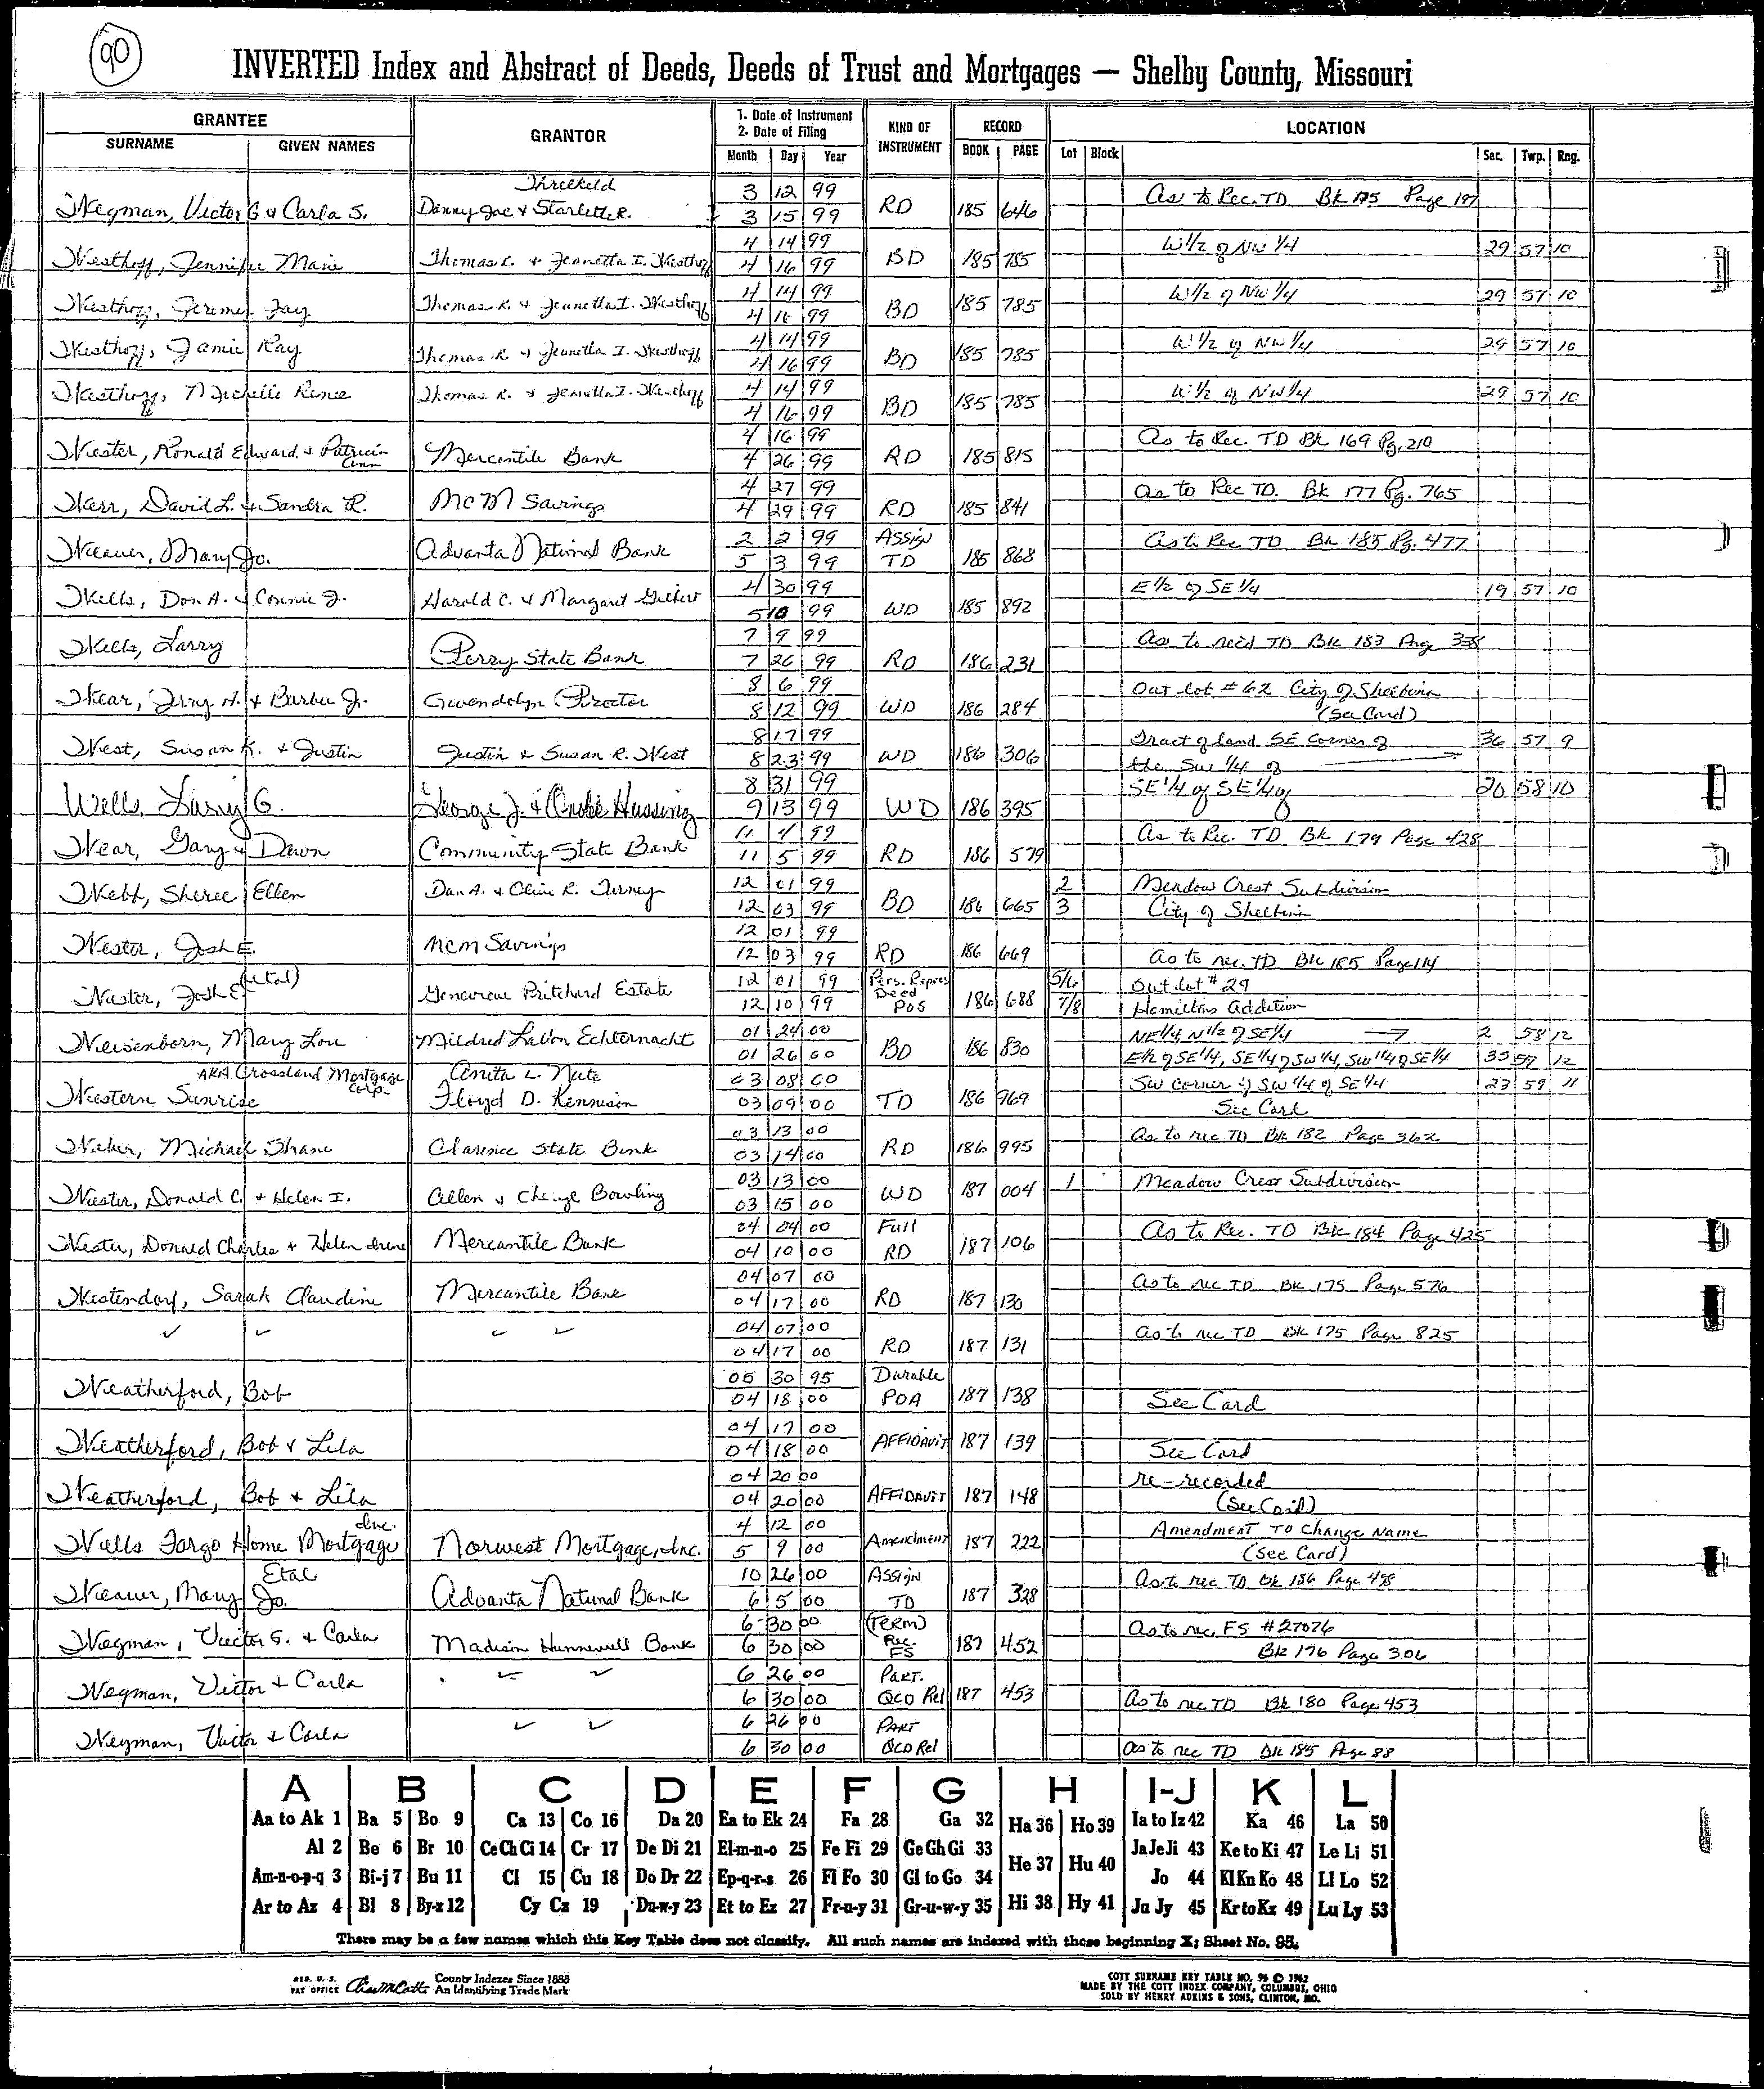 90
INVERTED Index and Abstract of Deeds, Deeds of Trust and Mortgages — Shelby County, Missouri
GRANTEE GRANTOR 1. Date of Instrument 2. Date of Filing KIND OF INSTRUMENT RECORD LOCATION
SURNAME GIVEN NAMES Month Day Year BOOK PAGE Lot Block Sec. Twp. Rng.
Threlkeld 3 12 99 As to Rec. TD Bk 175 Page 197
Wegman, Victor G & Carla S. Danny Joe & Starlett R. 3 15 99 RD 185 646
4 14 99 W 1/2 of NW 1/4 29 57 10
Westhoff, Jennifer Marie Thomas R. & Jeanetta I. Westhoff 4 16 99 BD 185 785
4 14 99 W 1/2 of NW 1/4 29 57 10
Westhoff, Jeremy Jay Thomas R. & Jeanetta I. Westhoff 4 16 99 BD 185 785
4 14 99 W 1/2 of NW 1/4 29 57 10
Westhoff, Jamie Ray Thomas R. & Jeanetta I. Westhoff 4 16 99 BD 185 785
4 14 99 W 1/2 of NW 1/4 29 57 10
Westhoff, Michelle Renee Thomas R. & Jeanetta I. Westhoff 4 16 99 BD 185 785
4 16 99 As to Rec. TD Bk 169 Pg. 210
Wester, Ronald Edward & Patricia Ann Mercantile Bank 4 26 99 RD 185 815
4 27 99 As to Rec TD. Bk 177 Pg. 765
Werr, David L. & Sandra R. MCM Savings 4 29 99 RD 185 841
2 2 99 Assign As to Rec TD Bk 185 Pg. 477
Weaver, Mary Jo. Advanta National Bank 5 3 99 TD 185 868
4 30 99 E 1/2 of SE 1/4 19 57 10
Wells, Don A. & Connie J. Harold C. & Margaret Gilbert 5 10 99 WD 185 892
7 9 99 As to rec'd TD Bk 183 Pag
Wells, Larry Perry State Bank 7 26 99 RD 186 231
8 6 99 Out Lot # 62 City of Shelbina
Wear, Jerry H. & Barbie J. Gwendolyn Proctor 8 12 99 WD 186 284 (See Card)
8 17 99 Tract of land SE Corner of 36 57 9
West, Susan K. & Justin Justin & Susan R. West 8 23 99 WD 186 306 the SW 1/4 of
8 31 99 SE 1/4 of SE 1/4 of 20 58 10
Wells, Larry G. George J. & Hussing 9 13 99 WD 186 395
11 4 99 As to Rec. TD Bk 179 Page 428
Wear, Gary & Dawn Community State Bank 11 5 99 RD 186 579
12 01 99 2 Meadow Crest Subdivision
Webb, Sheree Ellen Dan A. & Clive R. Turney 12 03 99 BD 186 665 3 City of Shelbina
12 01 99
Wester, Josh E. MCM Savings 12 03 99 RD 186 669 As to rec. TD Bk 185 Page 114
(etal) 12 01 99 Pers. Repres 5/6 Out Lot # 29
Wester, Josh E. Genevieve Pritchard Estate 12 10 99 Deed POS 186 688 7/8 Hamiltons Addition
01 24 00 NE 1/4, N 1/2 of SE 1/4 → 2 58 12
Weisenborn, Mary Lou Mildred LaVon Echternacht 01 26 00 BD 186 830 E 1/2 of SE 1/4, SE 1/4 of SW 1/4, SW 1/4 of SE 1/4 35 59 12
AKA Crossland Mortgage Corp. Anita L. Nate 03 08 00 SW Corner of SW 1/4 of SE 1/4 23 59 11
Western Sunrise Floyd D. Kennison 03 09 00 TD 186 969 See Card
03 13 00 As to rec TD Bk 182 Page 362
Weber, Michael Shane Clarence State Bank 03 14 00 RD 186 995
03 13 00 Meadow Crest Subdivision
Wester, Donald C. & Helen I. Allen & Bowling 03 15 00 WD 187 004 1
04 04 00 Full As to Rec. TD Bk 184 Page 425
Wester, Donald Charles & Helen Irene Mercantile Bank 04 10 00 RD 187 106
04 07 00 As to rec TD Bk 175 Page 576
Westendorf, Sarah Claudine Mercantile Bank 04 17 00 RD 187 130
04 07 00 As to rec TD Bk 175 Page 825
04 17 00 RD 187 131
05 30 95 Durable
Weatherford, Bob 04 18 00 POA 187 138 See Card
04 17 00
Weatherford, Bob & Lila 04 18 00 AFFIDAVIT 187 139 See Card
04 20 00 re-recorded
Weatherford, Bob & Lila 04 20 00 AFFIDAVIT 187 148 (See Card)
Inc. 4 12 00 Amendment To Change Name
Wells Fargo Home Mortgage Norwest Mortgage, Inc. 5 9 00 Amendment 187 222 (See Card)
Etal 10 26 00 Assign As to rec TD Bk 186 Page 498
Weaver, Mary Jo. Advanta National Bank 6 5 00 TD 187 328
6 30 00 (TERM) As to rec. FS # 27076
Wegman, Victor G. & Carla Madison Hunnewell Bank 6 30 00 Rec. FS 187 452 Bk 176 Page 306
6 26 00 Part.
Wegman, Victor & Carla 6 30 00 QCD Rel 187 453 As to rec TD Bk 180 Page 453
6 26 00 Part
Wegman, Victor & Carla 6 30 00 QCD Rel As to rec TD Bk 185 Page 88
A B C D E F G H I-J K L
Aa to Ak 1 Ba 5 Bo 9 Ca 13 Co 16 Da 20 Ea to Ek 24 Fa 28 Ga 32 Ha 36 Ho 39 Ia to Iz 42 Ka 46 La 50
Al 2 Be 6 Br 10 Ce Ch Ci 14 Cr 17 De Di 21 El-m-n-o 25 Fe Fi 29 Ge Gh Gi 33 He 37 Hu 40 Ja Je Ji 43 Ke to Ki 47 Le Li 51
Am-n-o-p-q 3 Bi-j 7 Bu 11 Cl 15 Cu 18 Do Dr 22 Ep-q-r-s 26 Fl Fo 30 Gl to Go 34 Jo 44 Kl Kn Ko 48 Ll Lo 52
Ar to Az 4 Bl 8 By-z 12 Cy Cz 19 Du-w-y 23 Et to Ez 27 Fr-u-y 31 Gr-u-w-y 35 Hi 38 Hy 41 Ju Jy 45 Kr to Kz 49 Lu Ly 53
There may be a few names which this Key Table does not classify. All such names are indexed with those beginning X; Sheet No. 95.
REG. U. S. PAT OFFICE County Indexes Since 1888 An Identifying Trade Mark
COTT SURNAME KEY TABLE NO. 96 © 1962
MADE BY THE COTT INDEX COMPANY, COLUMBUS, OHIO
SOLD BY HENRY ADKINS & SONS, CLINTON, MO.